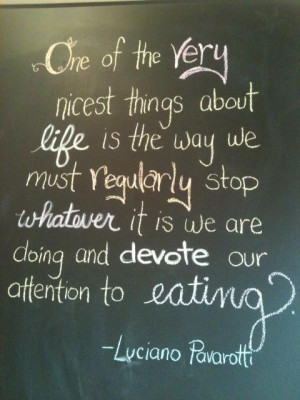 One of the very
nicest things about
life is the way we
must regularly stop
whatever it is we are
doing and devote our
attention to eating.
-Luciano Pavarotti